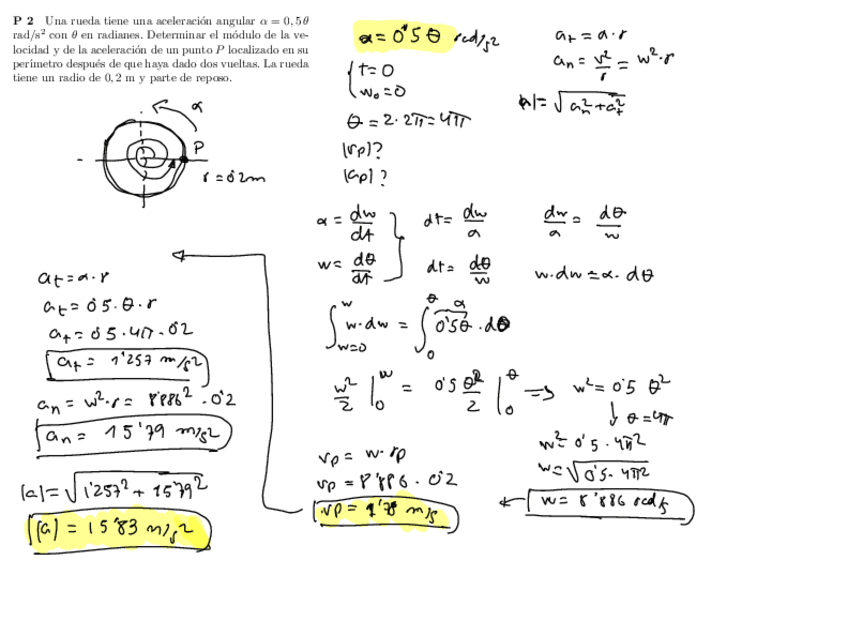 P 2 Una rueda tiene una aceleración angular α = 0,5θ
rad/s² con θ en radianes. Determinar el módulo de la ve-
locidad y de la aceleración de un punto P localizado en su
perímetro después de que haya dado dos vueltas. La rueda
tiene un radio de 0,2 m y parte de reposo.
α
P
r = 0'2m
α = 0'5 θ rad/s²
{ t=0
w₀=0
θ = 2·2π = 4π
|vp|?
|ap|?
at = α·r
an = v²/r = w²·r
|a| = √(an²+at²)
α = dw/dt
w = dθ/dt
dt = dw/α
dt = dθ/w
dw/α = dθ/w
w·dw = α·dθ
∫_{w=0}^{w} w·dw = ∫_{0}^{θ} 0'5θ·dθ
α
w²/2 |_0^w = 0'5 θ²/2 |_0^θ ⇒ w² = 0'5 θ²
↓ θ=4π
w² = 0'5·4π²
w = √(0'5·4π²)
w = 8'886 rad/s
vp = w·rp
vp = 8'886·0'2
vp = 1'78 m/s
at = α·r
at = 0'5·θ·r
at = 0'5·4π·0'2
at = 1'257 m/s²
an = w²·r = 8'886²·0'2
an = 15'79 m/s²
|a| = √(1'257² + 15'79²)
|a| = 15'83 m/s²